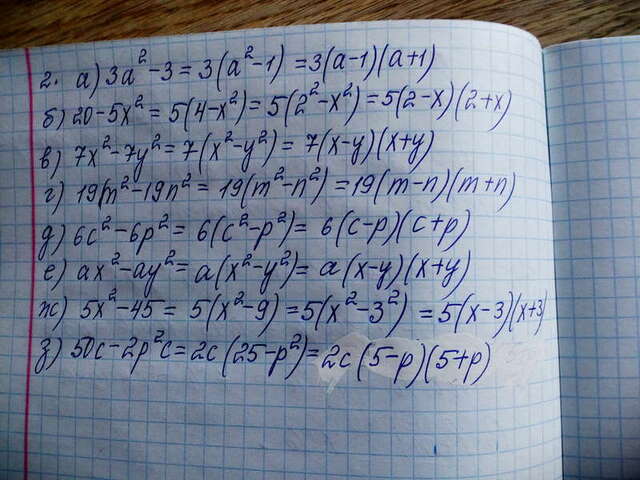 2. а) 3a² - 3 = 3(a² - 1) = 3(a - 1)(a + 1)
б) 20 - 5x² = 5(4 - x²) = 5(2² - x²) = 5(2 - x)(2 + x)
в) 7x² - 7y² = 7(x² - y²) = 7(x - y)(x + y)
г) 19m² - 19n² = 19(m² - n²) = 19(m - n)(m + n)
д) 6c² - 6p² = 6(c² - p²) = 6(c - p)(c + p)
е) ax² - ay² = a(x² - y²) = a(x - y)(x + y)
ж) 5x² - 45 = 5(x² - 9) = 5(x² - 3²) = 5(x - 3)(x + 3)
з) 50c - 2p²c = 2c(25 - p²) = 2c(5 - p)(5 + p)